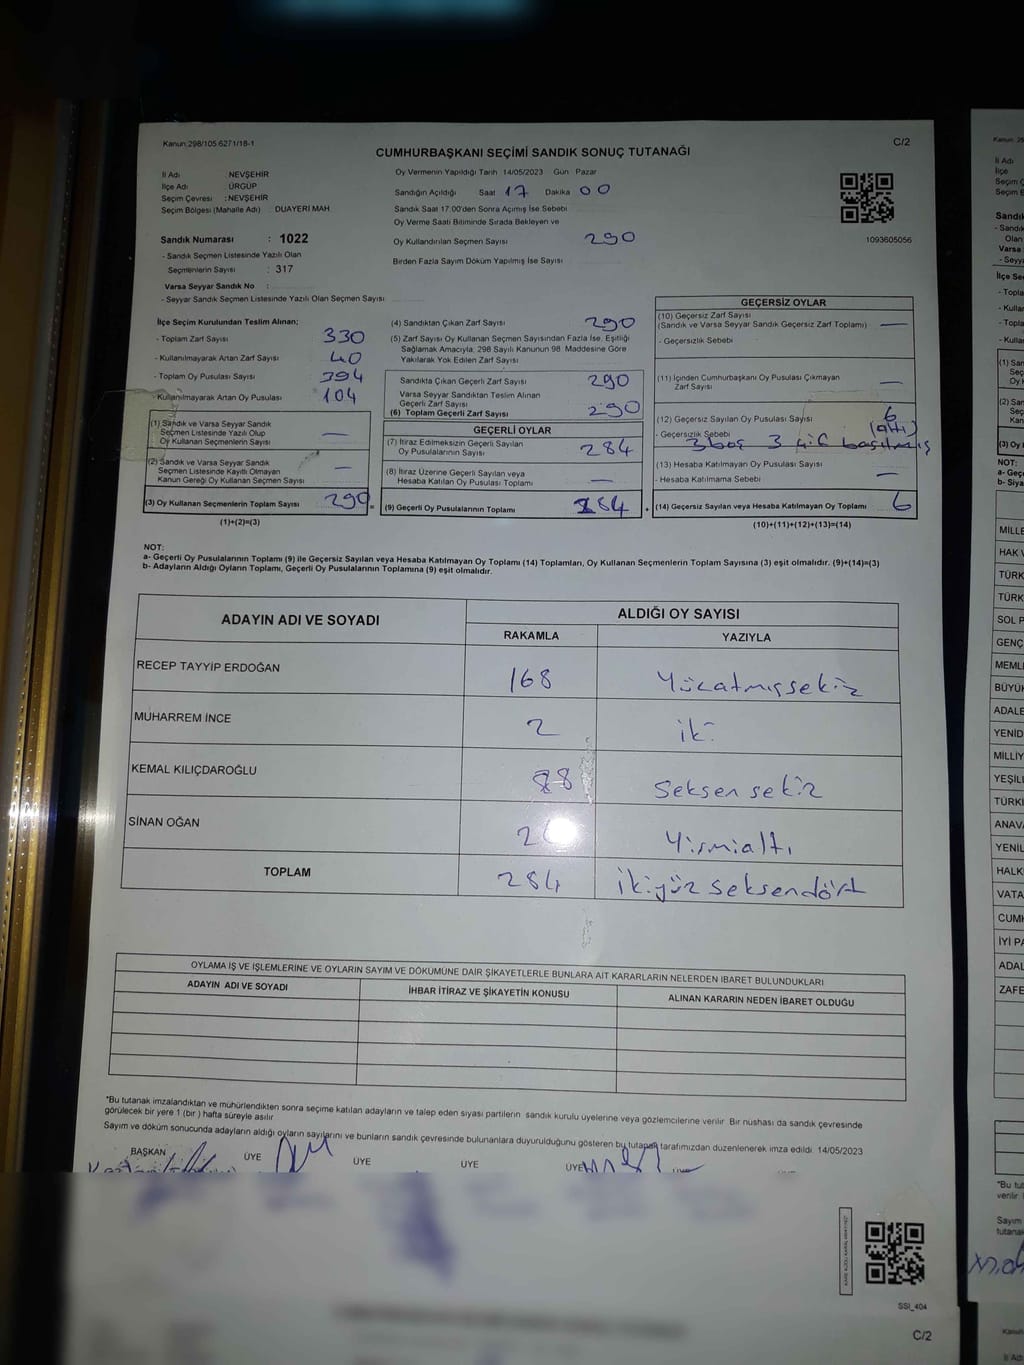 Kanun:298/105.6271/18-1
C/2
CUMHURBAŞKANI SEÇİMİ SANDIK SONUÇ TUTANAĞI
İl Adı : NEVŞEHİR
İlçe Adı : ÜRGÜP
Seçim Çevresi : NEVŞEHİR
Seçim Bölgesi (Mahalle Adı) : DUAYERİ MAH.
Sandık Numarası : 1022
- Sandık Seçmen Listesinde Yazılı Olan
Seçmenlerin Sayısı : 317
Varsa Seyyar Sandık No :
- Seyyar Sandık Seçmen Listesinde Yazılı Olan Seçmen Sayısı
Oy Vermenin Yapıldığı Tarih 14/05/2023 Gün Pazar
Sandığın Açıldığı Saat 17 Dakika 00
Sandık Saat 17.00'den Sonra Açımış İse Sebebi
Oy Verme Saati Bitiminde Sırada Bekleyen ve
Oy Kullandırılan Seçmen Sayısı 290
Birden Fazla Sayım Döküm Yapılmış İse Sayısı
1093605056
İlçe Seçim Kurulundan Teslim Alınan;
- Toplam Zarf Sayısı 330
- Kullanılmayarak Artan Zarf Sayısı 40
- Toplam Oy Pusulası Sayısı 394
- Kullanılmayarak Artan Oy Pusulası 104
(1) Sandık ve Varsa Seyyar Sandık
Seçmen Listesinde Yazılı Olup
Oy Kullanan Seçmenlerin Sayısı —
(2) Sandık ve Varsa Seyyar Sandık
Seçmen Listesinde Kayıtlı Olmayan
Kanun Gereği Oy Kullanan Seçmen Sayısı —
(3) Oy Kullanan Seçmenlerin Toplam Sayısı 290
(1)+(2)=(3)
(4) Sandıktan Çıkan Zarf Sayısı 290
(5) Zarf Sayısı Oy Kullanan Seçmen Sayısından Fazla İse, Eşitliği
Sağlamak Amacıyla, 298 Sayılı Kanunun 98. Maddesine Göre
Yakılarak Yok Edilen Zarf Sayısı
Sandıkta Çıkan Geçerli Zarf Sayısı 290
Varsa Seyyar Sandıktan Teslim Alınan
Geçerli Zarf Sayısı
(6) Toplam Geçerli Zarf Sayısı 290
GEÇERLİ OYLAR
(7) İtiraz Edilmeksizin Geçerli Sayılan
Oy Pusulalarının Sayısı 284
(8) İtiraz Üzerine Geçerli Sayılan veya
Hesaba Katılan Oy Pusulası Toplamı —
= (9) Geçerli Oy Pusulalarının Toplamı 284
GEÇERSİZ OYLAR
(10) Geçersiz Zarf Sayısı
(Sandık ve Varsa Seyyar Sandık Geçersiz Zarf Toplamı) —
- Geçersizlik Sebebi
(11) İçinden Cumhurbaşkanı Oy Pusulası Çıkmayan
Zarf Sayısı —
(12) Geçersiz Sayılan Oy Pusulası Sayısı 6
(altı)
- Geçersizlik Sebebi 3 boş 3 çift basılmış
(13) Hesaba Katılmayan Oy Pusulası Sayısı —
- Hesaba Katılmama Sebebi
+ (14) Geçersiz Sayılan veya Hesaba Katılmayan Oy Toplamı 6
(10)+(11)+(12)+(13)=(14)
NOT:
a- Geçerli Oy Pusulalarının Toplamı (9) ile Geçersiz Sayılan veya Hesaba Katılmayan Oy Toplamı (14) Toplamları, Oy Kullanan Seçmenlerin Toplam Sayısına (3) eşit olmalıdır. (9)+(14)=(3)
b- Adayların Aldığı Oyların Toplamı, Geçerli Oy Pusulalarının Toplamına (9) eşit olmalıdır.
ADAYIN ADI VE SOYADI
ALDIĞI OY SAYISI
RAKAMLA YAZIYLA
RECEP TAYYİP ERDOĞAN 168 Yüzatmışsekiz
MUHARREM İNCE 2 iki
KEMAL KILIÇDAROĞLU 88 Seksen sekiz
SİNAN OĞAN 26 Yirmialtı
TOPLAM 284 ikiyüz seksendört
OYLAMA İŞ VE İŞLEMLERİNE VE OYLARIN SAYIM VE DÖKÜMÜNE DAİR ŞİKAYETLERLE BUNLARA AİT KARARLARIN NELERDEN İBARET BULUNDUKLARI
ADAYIN ADI VE SOYADI İHBAR İTİRAZ VE ŞİKAYETİN KONUSU ALINAN KARARIN NEDEN İBARET OLDUĞU
*Bu tutanak imzalandıktan ve mühürlendikten sonra seçime katılan adayların ve talep eden siyasi partilerin sandık kurulu üyelerine veya gözlemcilerine verilir. Bir nüshası da sandık çevresinde
görülecek bir yere 1 (bir) hafta süreyle asılır
Sayım ve döküm sonucunda adayların aldığı oyların sayılarını ve bunların sandık çevresinde bulunanlara duyurulduğunu gösteren bu tutanak tarafımızdan düzenlenerek imza edildi. 14/05/2023
BAŞKAN ÜYE ÜYE ÜYE ÜYE
SSİ_404
C/2